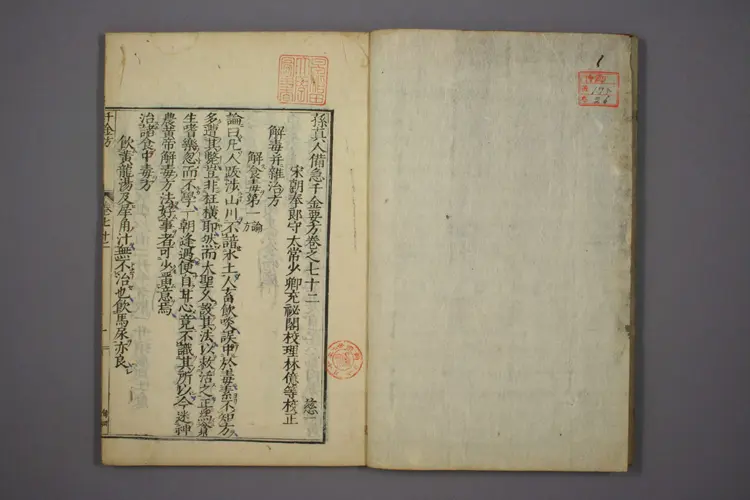 孫真人備急千金要方卷之七十二 慈一
宋朝奉郎守太常少卿充祕閣校理林億等校正
解毒并雜治方
解食毒第一 論 方
論曰凡人跋涉山川不諳水土人畜飲啖誤中於毒素不知方
多遭其斃豈非枉橫耶然而大聖久設其法以救治之正為貪
生嗜樂忽而不學一朝逢遇便自甘心竟不識其所以今述神
農黃帝解毒方法好事者可少留意焉
治諸食中毒方
飲黃龍湯及犀角汁無不治也飲馬尿亦良
千金方
卷七十二
一